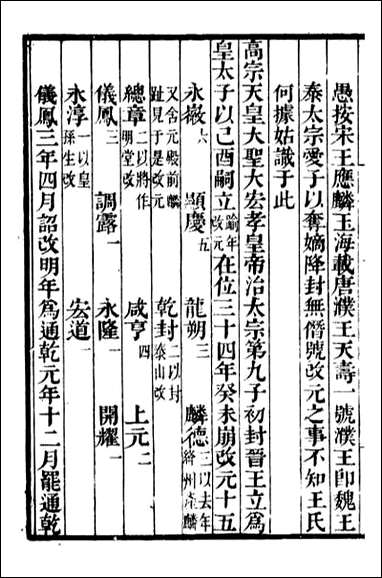 愚按宋王應麟玉海載唐濮王天壽一號濮王卽魏王
泰太宗愛子以奪嫡降封無僭號改元之事不知王氏
何據姑識于此
高宗天皇大聖大宏孝皇帝治太宗第九子初封晉王立爲
皇太子以己酉嗣立踰年改元在位三十四年癸未崩改元十五
永徽六 顯慶五 龍朔三 麟德三以去年絳州產麟
又含元殿前麟趾見于是改元 乾封二以封泰山改
總章二以將作明堂改 咸亨四 上元二
儀鳳三 調露一 永隆一 開耀一
永淳一以皇孫生改 宏道一
儀鳳三年四月詔改明年爲通乾元年十二月罷通乾